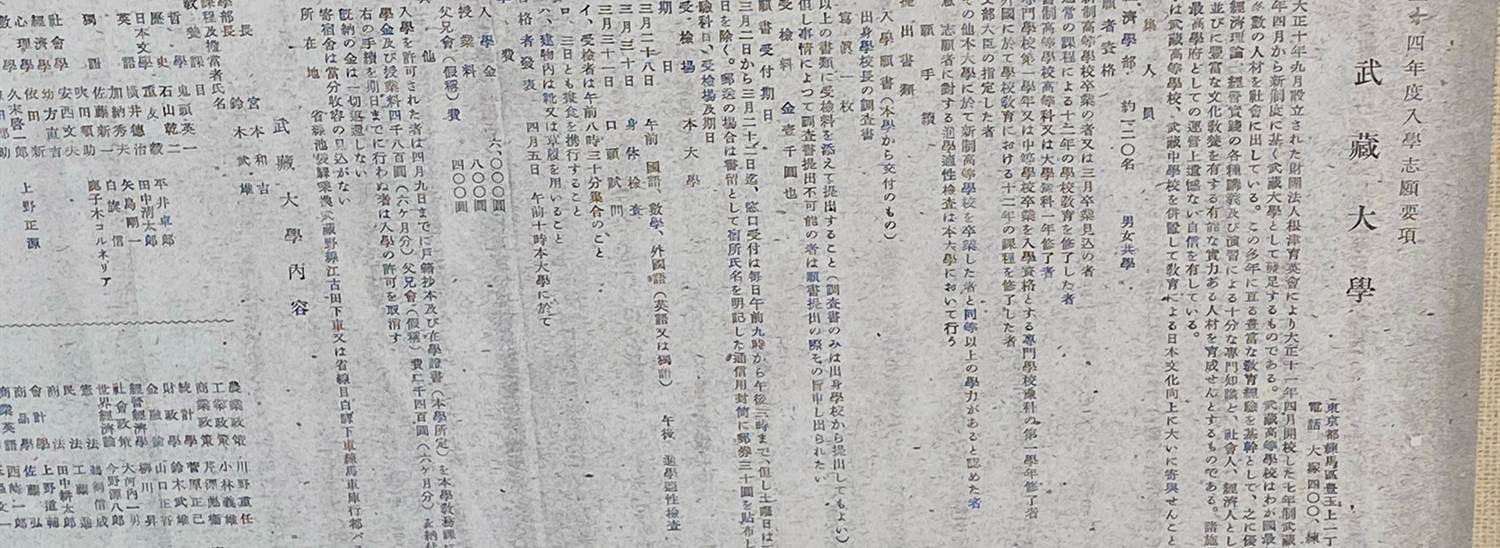 十四年度入學志願要項
武藏大學
東京都練馬區豊玉上一丁
電話 大塚四〇〇、練
大正十年九月設立された財團法人根津育英會により大正十一年四月開校した七年制武藏
年四月から新制度に基く武藏大學として發足するものである。武藏高等學校はわが國最
多數の人材を社會に出している。この多年に亘る豊富な教育經驗を基幹として、之に優
經濟理論、經營實踐の各種講義及び演習による十分な專門知識と、社會人、經濟人とし
並びに豊富な文化教養を有する有能な實力ある人材を育成せんとするものである。諸施
最高學府としての運營上遺憾ない自信を有している。
は武藏高等學校、武藏中學校を併置して教育による日本文化向上に大いに寄與せんこと
集人員
濟學部 約一二〇名 男女共學
願者資格
新制高等學校卒業の者又は三月卒業見込の者
通常の課程による十二年の學校教育を修了した者
舊制高等學校高等科又は大學豫科一年修了者
專門學校第一學年又は中等學校卒業を入學資格とする專門學校豫科の第一學年修了者
外國に於て學校教育における十二年の課程を修了した者
文部大臣の指定した者
その他本大學に於て新制高等學校を卒業した者と同等以上の學力があると認めた者
志願者に對する進學適性檢査は本大學において行う
願手續
提出書類
入學願書(本學から交付のもの)
出身學校長の調査書
寫眞一枚
以上の書類に受檢料を添えて提出すること(調査書のみは出身學校から提出してもよい)
但し事情によつて調査書提出不可能の者は願書提出の際その旨申し出られたい
受檢料 金壹千圓也
願書受付期日
三月二日から三月二十二日迄、窓口受付は毎日午前九時から午後三時まで、但し土曜日は
日を除く。郵送の場合は書留として宿所氏名を明記した通信用封筒に郵券三十圓を貼布し
驗科目、受檢場及期日
受檢場 本大學
期日
三月二十八日 午前 國語、數學、外國語(英語又は獨語) 午後 進學適性檢査
三月三十日 身体檢査
三月三十一日 口頭試問
イ、受檢者は午前八時三十分集合のこと
ロ、三日とも辨當を携行すること
ハ、建物内は靴又は草履を用いること
格者發表 四月五日 午前十時本大學に於て
費
入學金 六、〇〇〇圓
授業料 八〇〇圓
父兄會(假稱)費 四〇〇圓
他
入學を許可された者は四月九日までに戸籍抄本及び在學證書(本學所定)を本學教務課に
學金及び授業料四千八百圓(六ケ月分)父兄會(假稱)費二千四百圓(六ケ月分)を納付
右の手續を期日までに行わぬ者は入學の許可を取消す
既納の金は一切返還しない
寄宿舍は當分收容の見込がない
所在地 省線池袋驛乘換武藏野線江古田下車又は省線目白驛下車練馬車庫行都バ
武藏大學內容
長 宮本和吉
學部長 鈴木武雄
課程及擔當者氏名
教養課目
哲學 鬼頭英一
歷史 石山乾二
日本文學 重友毅
英語 橫井德治
加納秀夫
佐藤新一
獨語 吹田順助
安西文夫
經濟學 幼方直吉
心理學 依田新
數學 久末啓一郎
平井卓郎
田中淸太郎
矢島剛一
白旗信
鹿子木コルネリア
上野正源
農業政策 川野重任
工業政策 小林義雄
商業政策 芹澤彪衞
統計學 菅原正己
財政學 鈴木武雄
金融論 山口正吾
經營經濟學 柳川昇
社會政策 大河內一男
世界經濟論 今野源八郎
憲法 鵜飼信成
民法 工藤
商法 田中耕太郎
會計學 上野道輔
商品學 佐藤弘
商業英語 西崎一郎